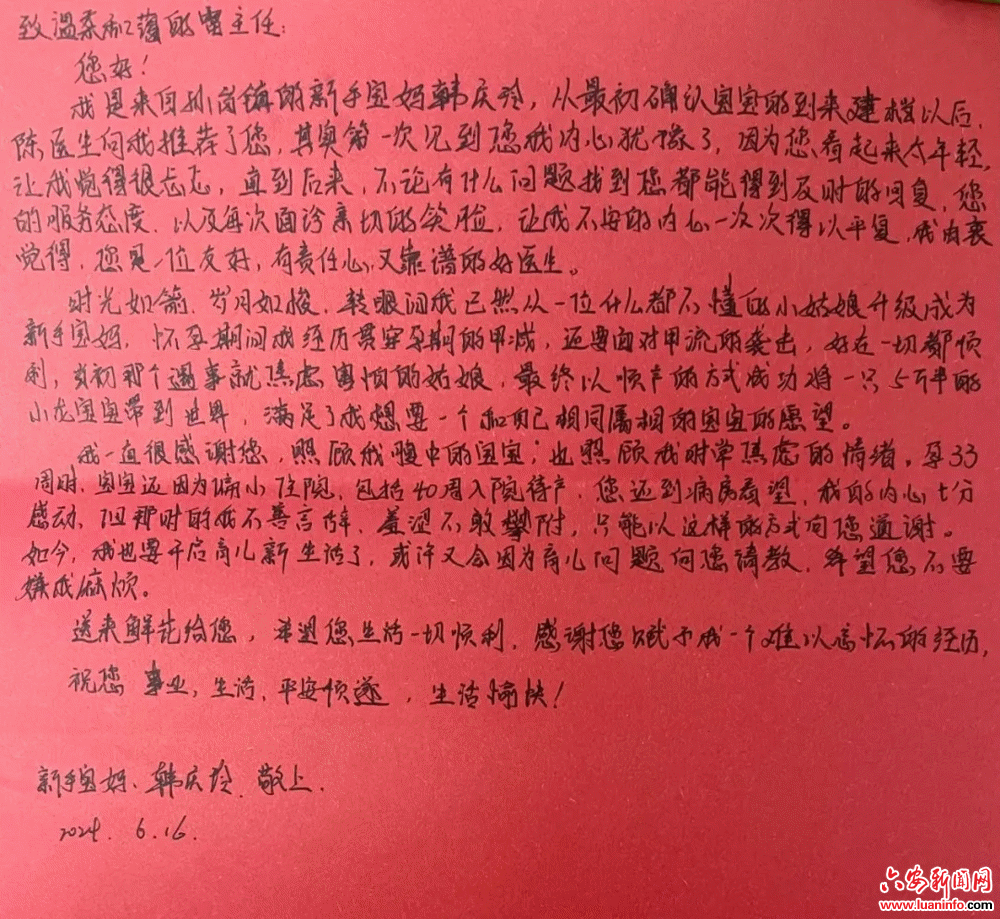 致温柔和蔼的曹主任:
您好!
我是来自孙岗镇的新手宝妈韩庆玲,从最初确认宝宝的到来建档以后,
陈医生向我推荐了您,其实第一次见到您我内心犹豫了,因为您看起来太年轻,
让我觉得很忐忑,直到后来,不论有什么问题找到您都能得到及时的回复,您
的服务态度,以及每次面诊亲切的笑脸,让我不安的内心一次次得以平复,我由衷
觉得,您是一位友好,有责任心,又靠谱的好医生。
时光如箭,岁月如梭,转眼间我已然从一位什么都不懂的小姑娘升级成为
新手宝妈,怀孕期间我经历贯穿孕期的甲减,还要面对甲流的袭击,好在一切都顺
利,当初那个遇事就焦虑害怕的姑娘,最终以顺产的方式成功将一只5斤半的
小龙宝宝带到世界,满足了我想要一个和自己相同属相的宝宝的愿望。
我一直很感谢您,照顾我腹中的宝宝;也照顾我时常焦虑的情绪,孕33
周时,宝宝还因为偏小住院,包括40周入院待产,您还到病房看望,我的内心十分
感动,但那时的我不善言辞,羞涩不敢攀附,只能以这样的方式向您道谢。
如今,我也要开启育儿新生活了,或许又会因为育儿问题向您请教,希望您不要
嫌我麻烦。
送来鲜花给您,希望您生活一切顺利,感谢您赋予我一个难以忘怀的经历,
祝您 事业,生活,平安顺遂,生活愉快!
新手宝妈、韩庆玲.敬上.
2024. 6.16.
六安新闻网
www.luaninfo.com